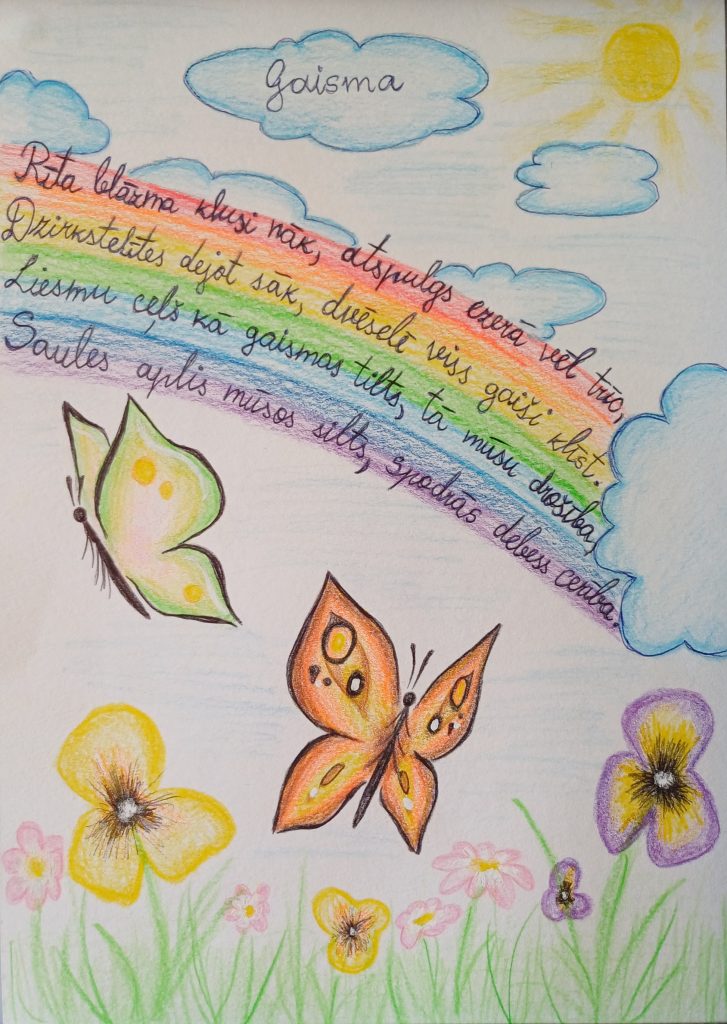 Gaisma
Rīta blāzma klusi nāk, atspulgs ezerā vēl trīc,
Dzirkstelītes dejot sāk, dvēselē viss gaiši klīst.
Liesmu ceļš kā gaismas tilts, tā mūsu drošība,
Saules aplis mūsos silts, spodrās debess cerība.